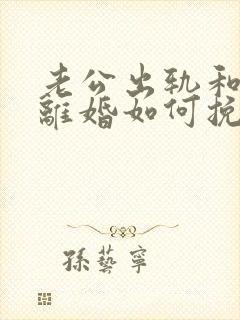 老公出轨和
離婚如何挽
孫藝寧